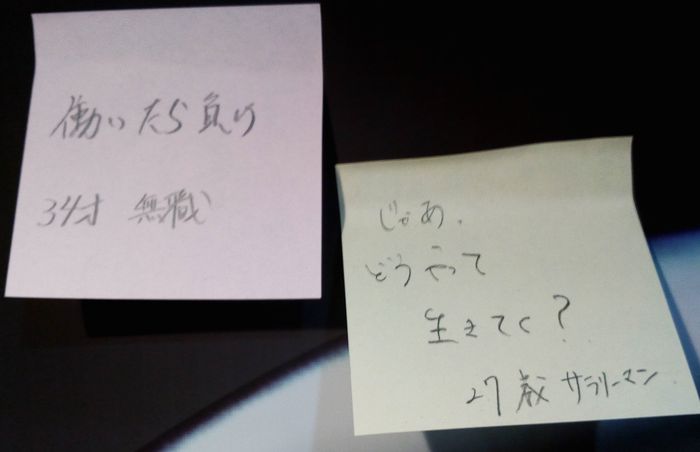 働いたら負け
34才 無職
じゃあ、
どうやって
生きてく?
27歳 サラリーマン